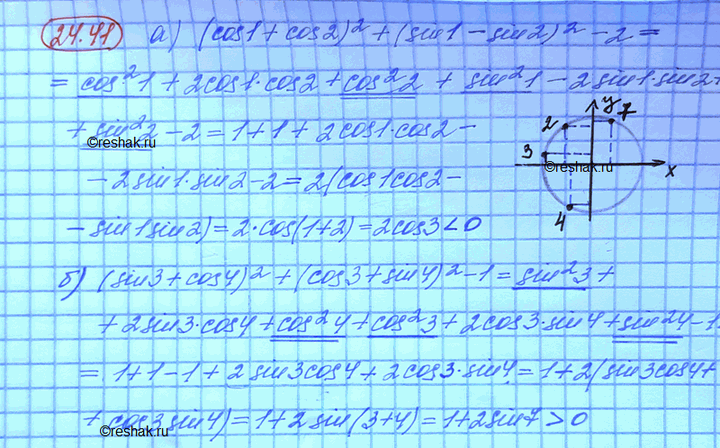 24.41 а) (cos1 + cos2)² + (sin1 – sin2)² – 2 =
= cos²1 + 2cos1·cos2 + cos²2 + sin²1 – 2sin1·sin2 +
+ sin²2 – 2 = 1 + 1 + 2cos1·cos2 –
– 2sin1·sin2 – 2 = 2(cos1cos2 –
– sin1sin2) = 2·cos(1+2) = 2cos3 < 0
y
7
2
3
x
4
б) (sin3 + cos4)² + (cos3 + sin4)² – 1 = sin²3 +
+ 2sin3·cos4 + cos²4 + cos²3 + 2cos3·sin4 + sin²4 – 1
= 1 + 1 – 1 + 2sin3cos4 + 2cos3·sin4 = 1 + 2(sin3cos4 +
+ cos3sin4) = 1 + 2sin(3+4) = 1 + 2sin7 > 0
©reshak.ru
©reshak.ru
©reshak.ru